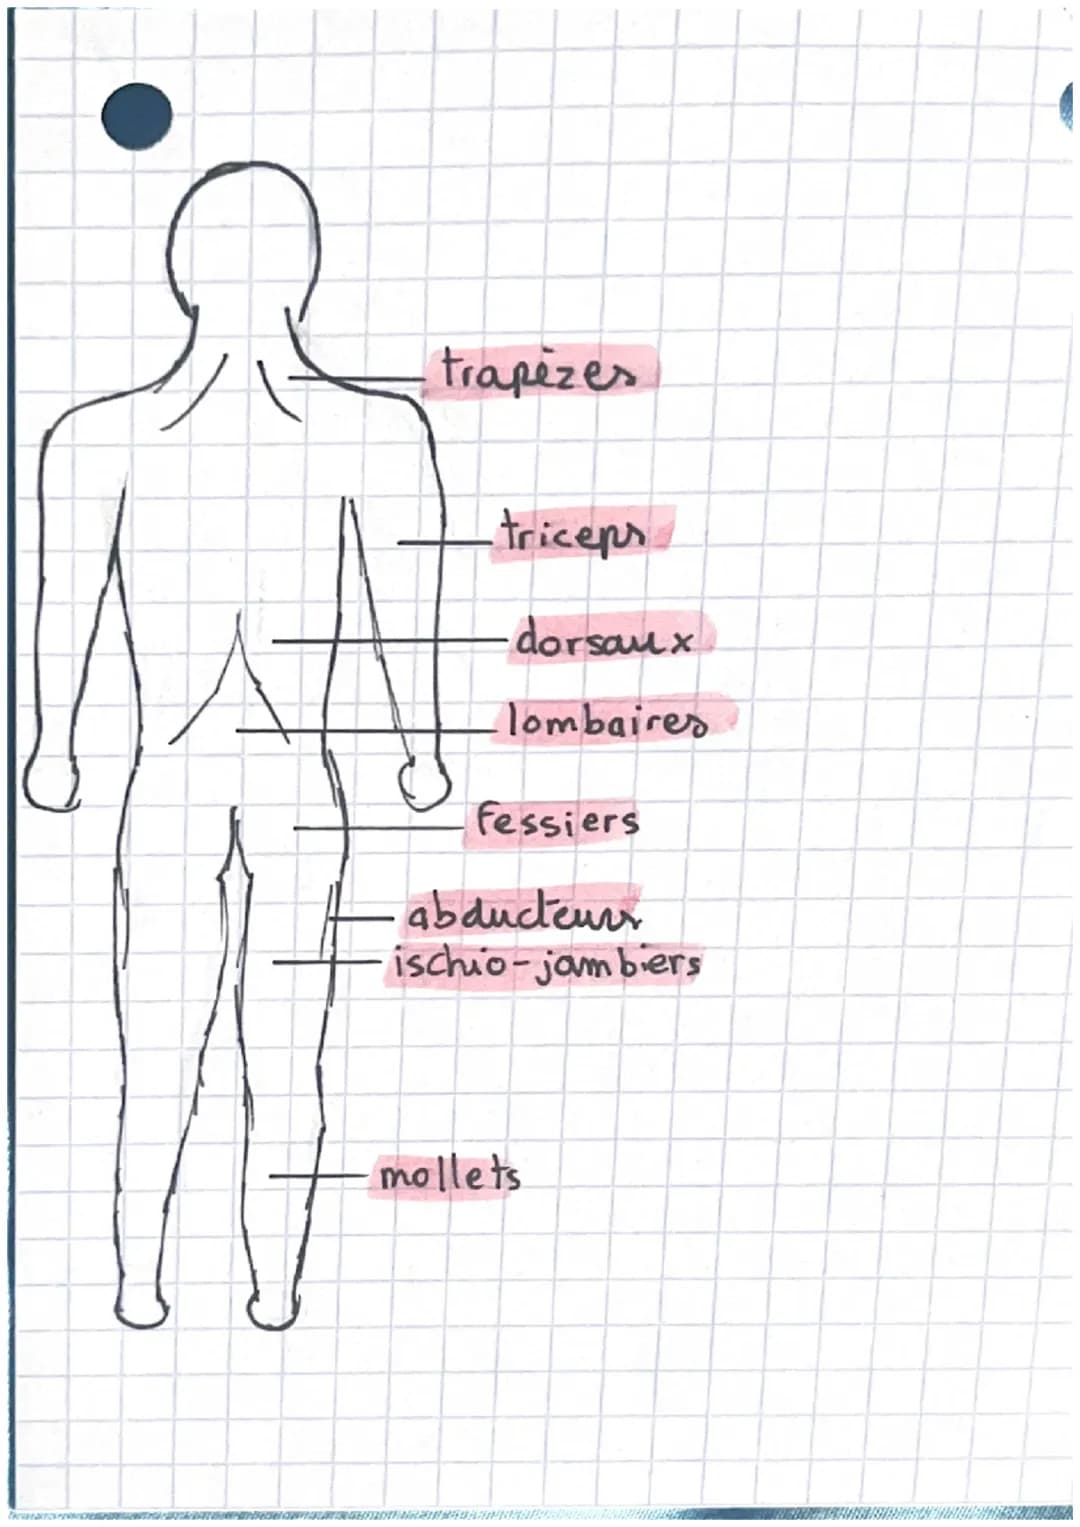 trapèzes
triceps
dorsaux
lombaires
fessiers
abducteurs
ischio-jambiers
mollets